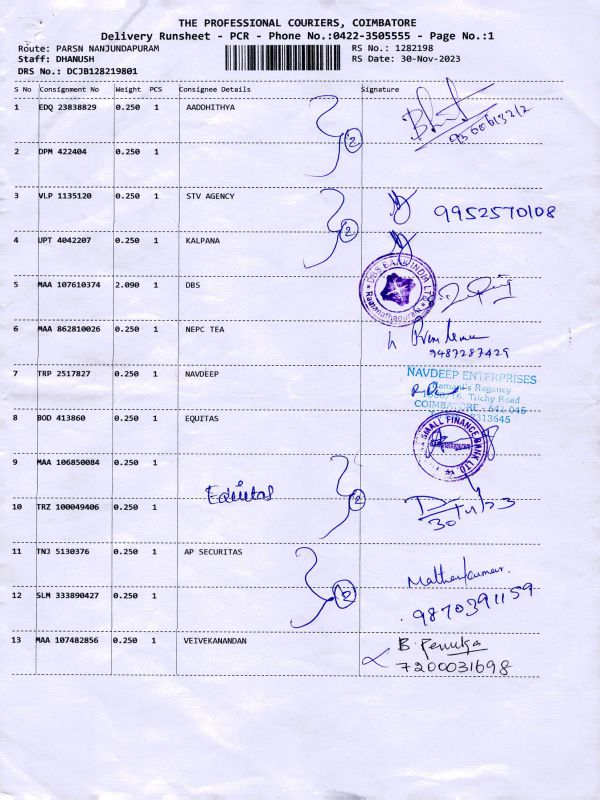 THE PROFESSIONAL COURIERS, COIMBATORE
Delivery Runsheet - PCR - Phone No.:0422-3505555 - Page No.:1
Route: PARSN NANJUNDAPURAM RS No.: 1282198
Staff: DHANUSH RS Date: 30-Nov-2023
DRS No.: DCJB128219801
S No Consignment No Weight PCS Consignee Details Signature
1 EDQ 23838829 0.250 1 AADDHITHYA
2
2 DPM 422404 0.250 1
3 VLP 1135120 0.250 1 STV AGENCY 9952570108
2
4 UPT 4042207 0.250 1 KALPANA
DBS BANK INDIA LTD
Ramanathapuram
5 MAA 107610374 2.090 1 DBS
6 MAA 862810026 0.250 1 NEPC TEA
9487287429
7 TRP 2517827 0.250 1 NAVDEEP NAVDEEP ENTERPRISES
Ramani's Regency
Trichy Road
COIMBATORE - 641 045
2313645
8 BOD 413860 0.250 1 EQUITAS
SMALL FINANCE BANK LTD
9 MAA 106850084 0.250 1
Equitas
2
10 TRZ 100049406 0.250 1
30/11/23
11 TNJ 5130376 0.250 1 AP SECURITAS
Mathankumar.
2
12 SLM 333890427 0.250 1 9870391159
13 MAA 107482856 0.250 1 VEIVEKANANDAN B. Renuka
7200031698